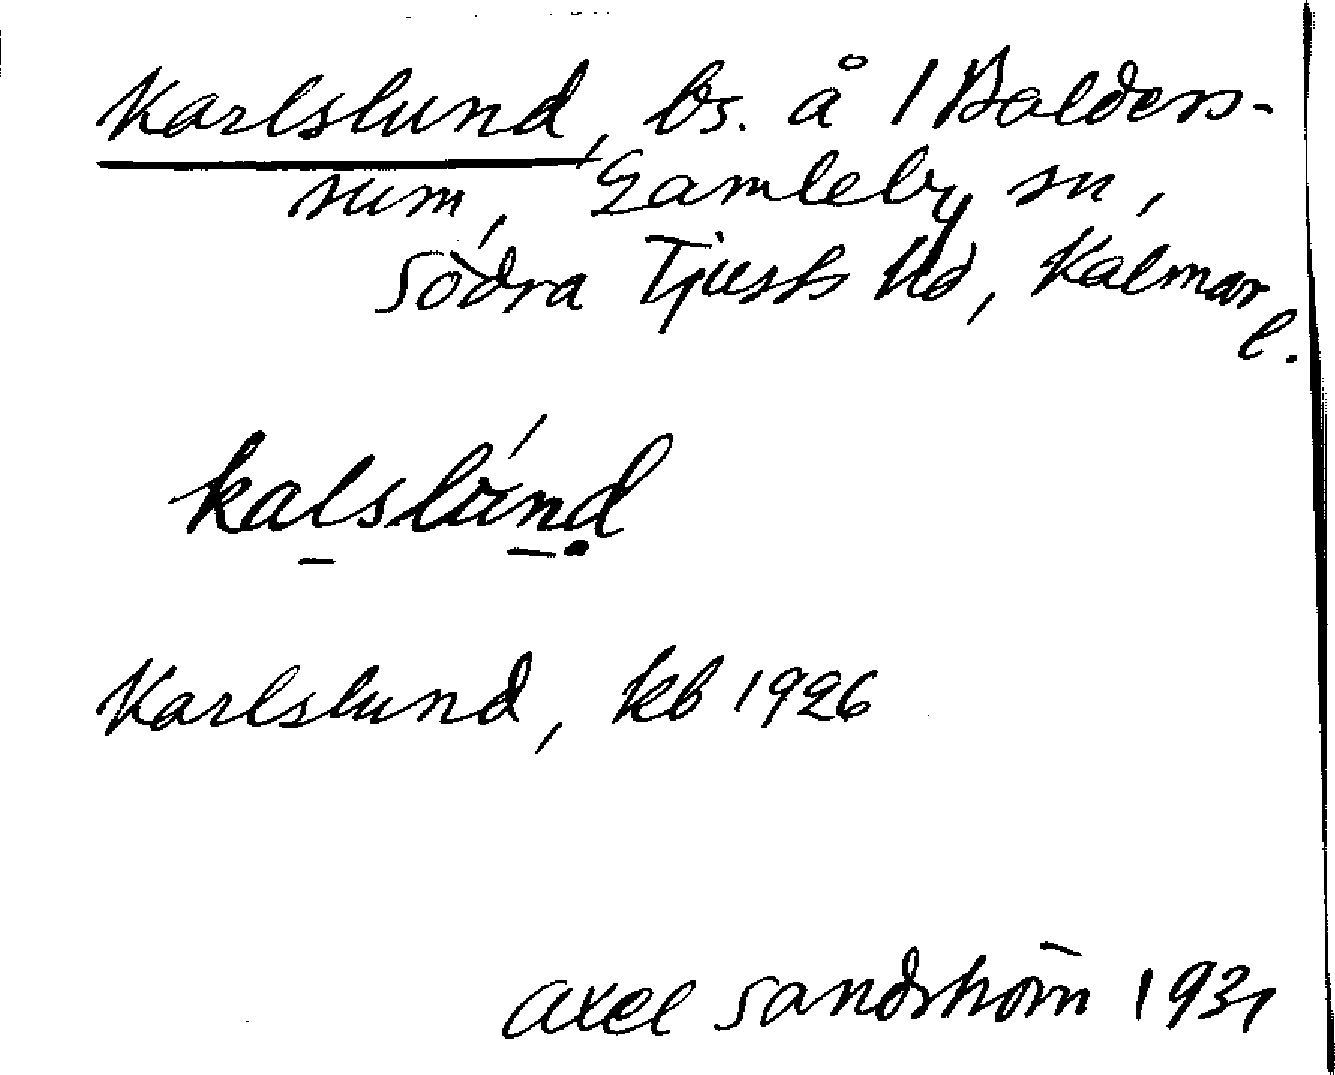 Karlslund, bs. å 1 Balders-
rum, Gamleby sn,
Södra Tjusts hd, Kalmar
l.
kalslúnd
Karlslund, kb 1926
Axel Sandström 1931